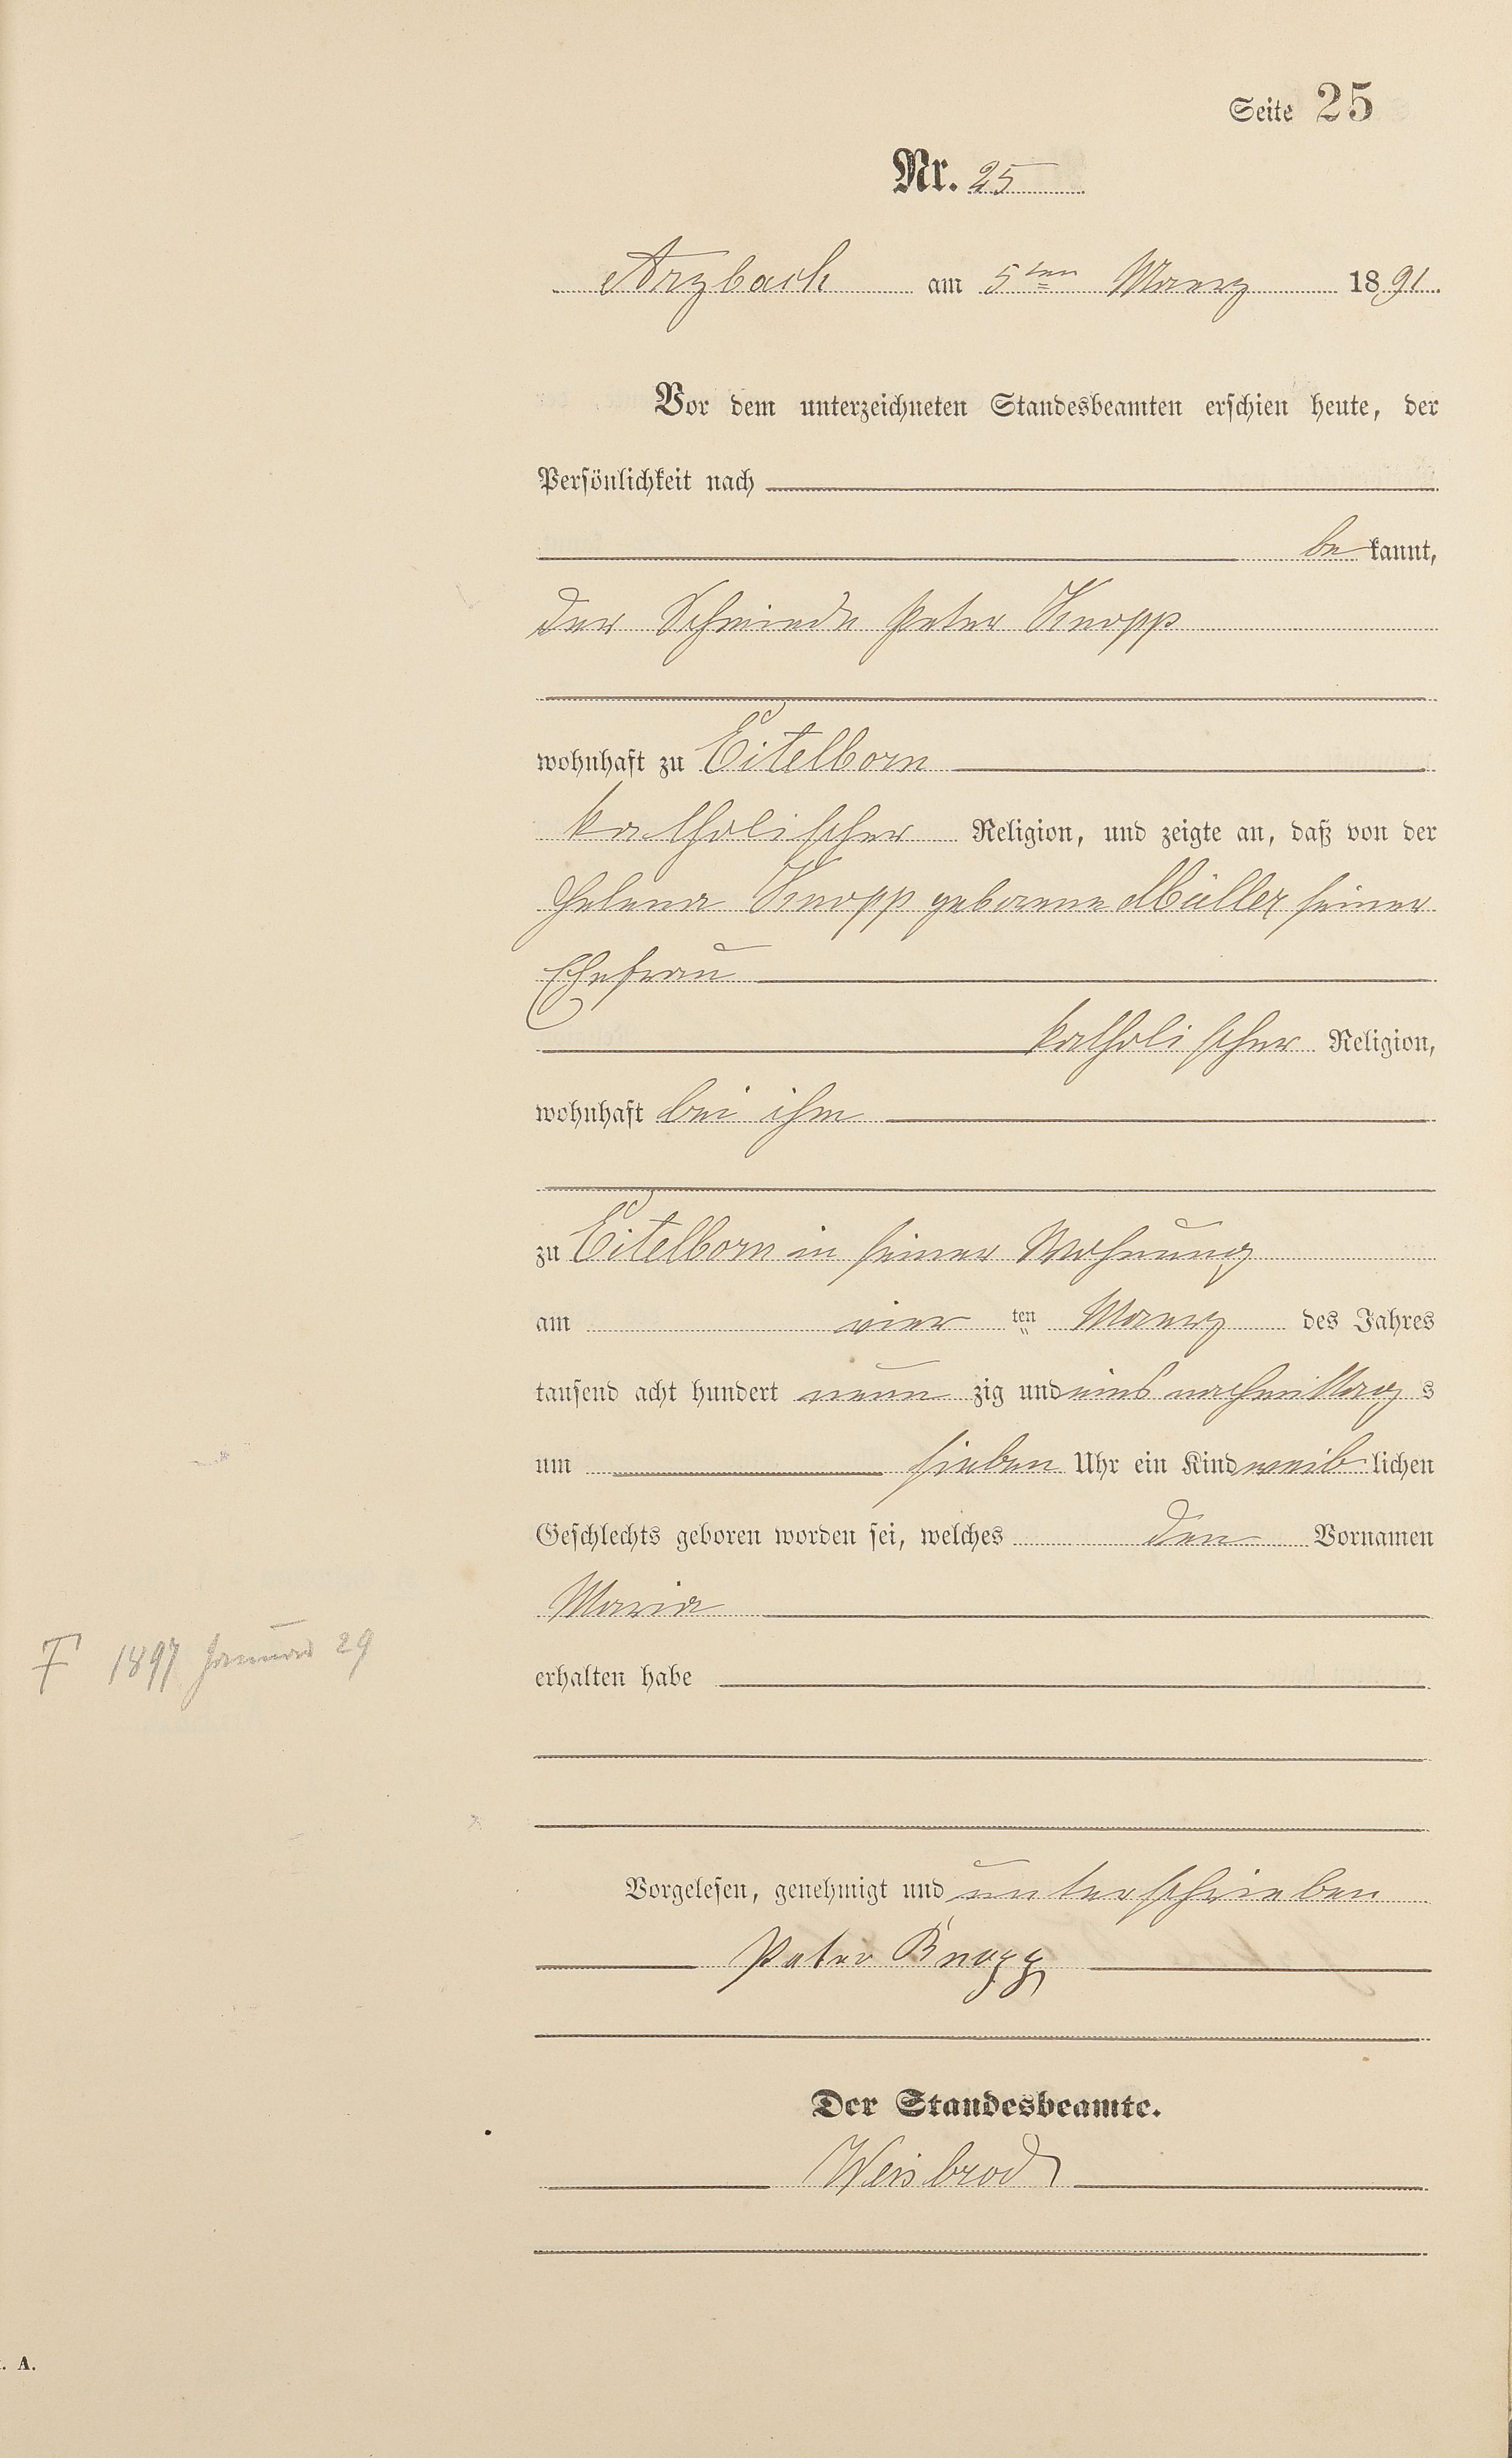 Seite 25
Nr. 25
Arzbach am 5ten Maerz 1891.
Vor dem unterzeichneten Standesbeamten erschien heute, der
Persönlichkeit nach
be kannt,
der Schmiede Peter Knopp
wohnhaft zu Eitelborn
katholischer Religion, und zeigte an, daß von der
Helena Knopp geborene Müller seiner
Ehefrau
katholischer Religion,
wohnhaft bei ihm
zu Eitelborn in seiner Wohnung
am vier ten Maerz des Jahres
tausend acht hundert neun zig und eins nachmittag s
um sieben Uhr ein Kind weib lichen
Geschlechts geboren worden sei, welches den Vornamen
Maria
† 1897 Januar 29
erhalten habe
Vorgelesen, genehmigt und unterschrieben
Peter Knopp
Der Standesbeamte.
Weisbrod
. A.